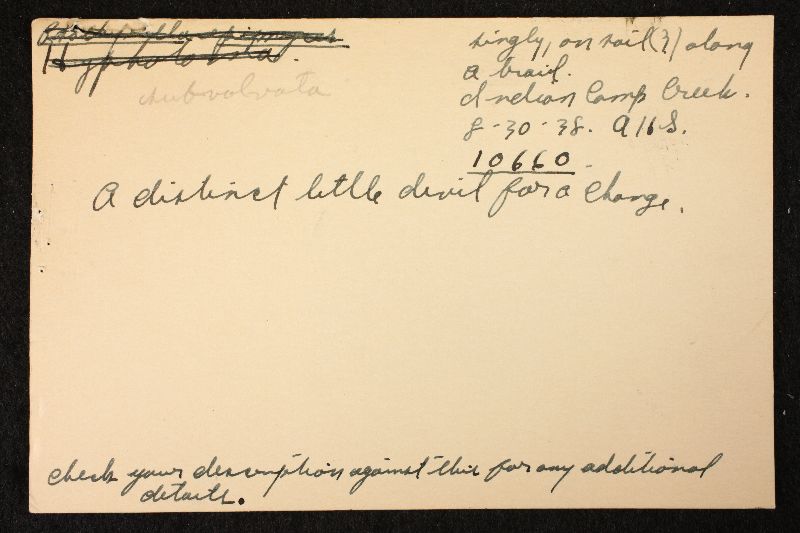 Hypholoma.
subvolvata
singly, on soil(?) along
a trail.
Indian Camp Creek.
8-30-38. AHS.
10660.
A distinct little devil for a change.
check your description against this for any additional
details.